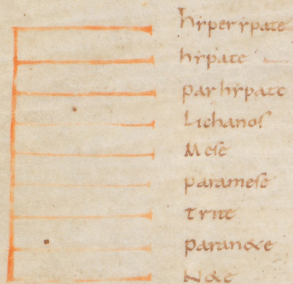 hyperypate
hypate
parhypate
Lichanos
Mese
paramese
trite
paranete
Nete